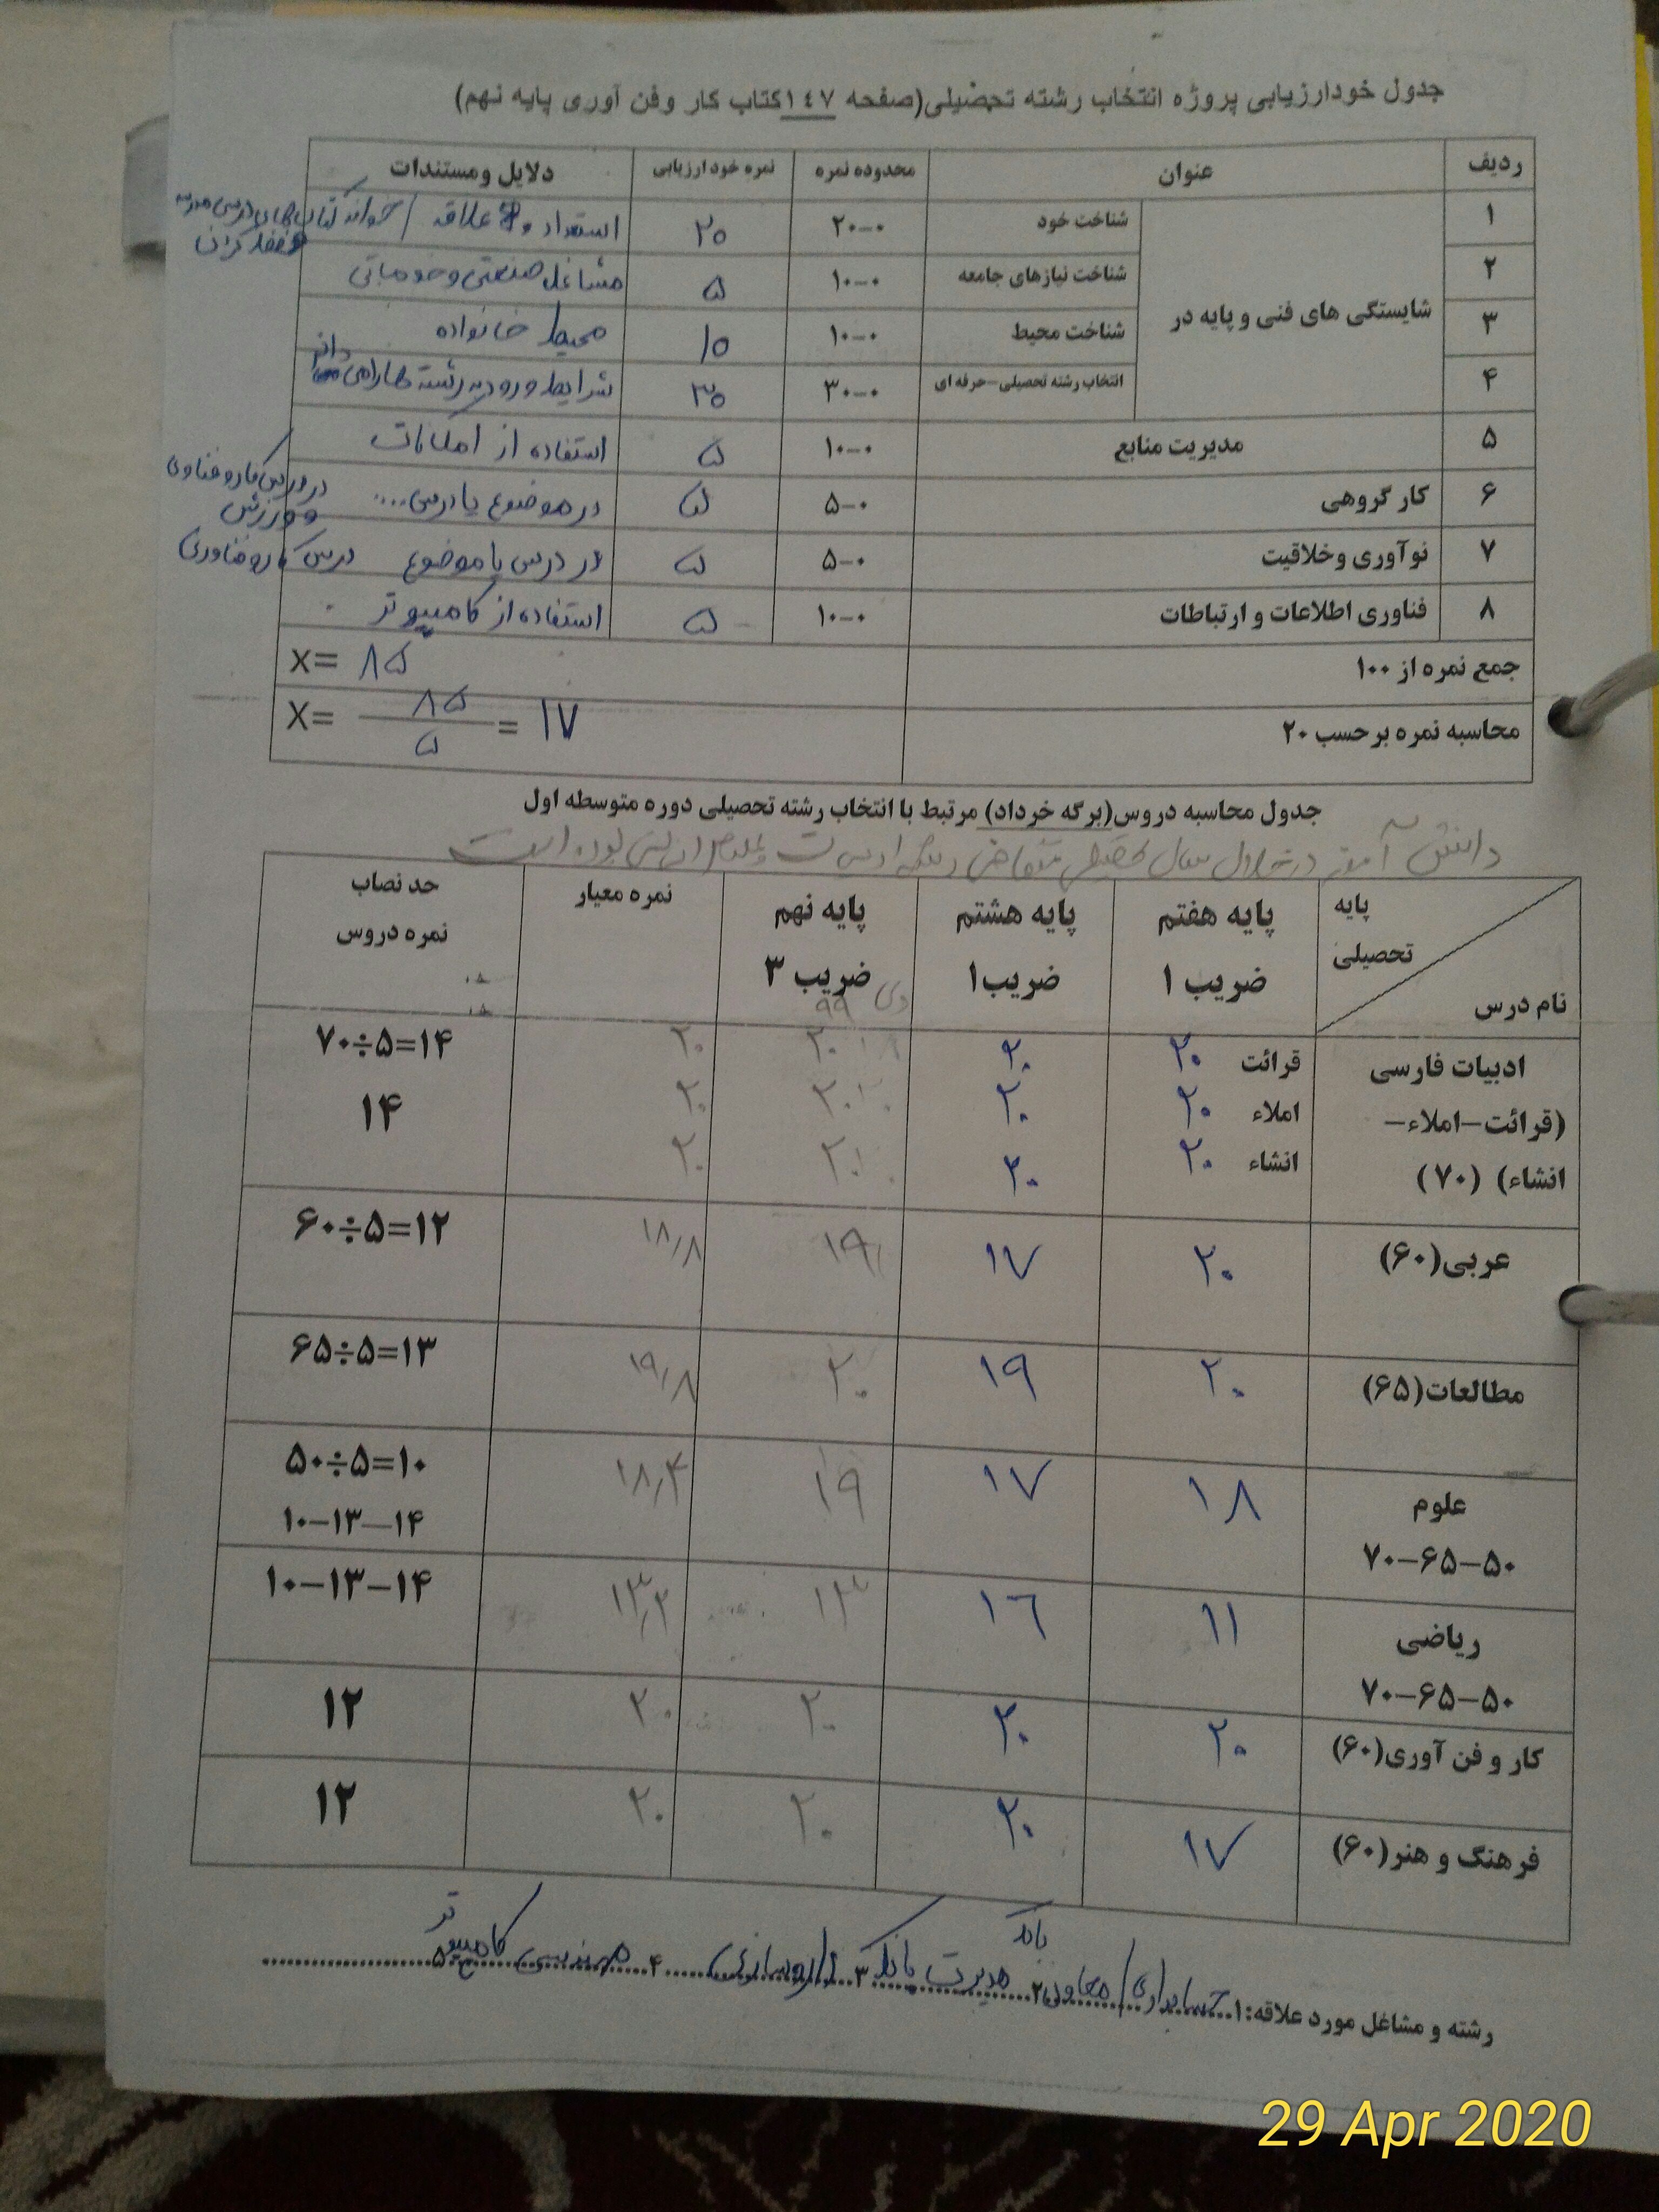 جدول خودارزیابی پروژه انتخاب رشته تحصیلی(صفحه ۱٤۷کتاب کار وفن آوری پایه نهم)
ردیف عنوان محدوده نمره نمره خود ارزیابی دلایل ومستندات
شایستگی های فنی و پایه در
۱ شناخت خود ۰-۲۰ ۲۰ استعداد و علاقه / خواندن کتاب های درسی مدرسه
۲ شناخت نیازهای جامعه ۰-۱۰ ۵ مشاغل صنعتی و خدماتی
۳ شناخت محیط ۰-۱۰ ۱۰ محیط خانواده
۴ انتخاب رشته تحصیلی-حرفه ای ۰-۳۰ ۳۰ شرایط ورود به رشته ها را می دانم
۵ مدیریت منابع ۰-۱۰ ۵ استفاده از امکانات
۶ کار گروهی ۰-۵ ۵ در موضوع یا درس.... در درس کار و فناوری و ورزش
۷ نوآوری وخلاقیت ۰-۵ ۵ در درس یا موضوع درس کار و فناوری
۸ فناوری اطلاعات و ارتباطات ۰-۱۰ ۵ استفاده از کامپیوتر
جمع نمره از ۱۰۰ X= ۸۵
محاسبه نمره برحسب ۲۰ X= ۸۵ / ۵ = ۱۷
جدول محاسبه دروس(برگه خرداد) مرتبط با انتخاب رشته تحصیلی دوره متوسطه اول
دانش آموز در خلال سال تحصیلی متقاضی رشته ادبیات و علوم انسانی بوده است
پایه تحصیلی نام درس پایه هفتم ضریب ۱ پایه هشتم ضریب۱ پایه نهم ضریب ۳ نمره معیار حد نصاب نمره دروس
دی ۹۹
ادبیات فارسی قرائت ۲۰ ۲۰ ۲۰ ۲۰ ۷۰÷۵=۱۴
(قرائت-املاء- املاء ۲۰ ۲۰ ۲۰ ۲۰ ۱۴
انشاء) (۷۰) انشاء ۲۰ ۲۰ ۲۰ ۲۰
عربی(۶۰) ۲۰ ۱۷ ۱۹ ۱۸/۸ ۶۰÷۵=۱۲
مطالعات(۶۵) ۲۰ ۱۹ ۲۰ ۱۹/۸ ۶۵÷۵=۱۳
علوم ۱۸ ۱۷ ۱۹ ۱۸/۴ ۵۰÷۵=۱۰
۵۰-۶۵-۷۰ ۱۴-۱۳-۱۰
ریاضی ۱۱ ۱۶ ۱۳ ۱۳/۲ ۱۴-۱۳-۱۰
۵۰-۶۵-۷۰
کار و فن آوری(۶۰) ۲۰ ۲۰ ۲۰ ۲۰ ۱۲
فرهنگ و هنر(۶۰) ۱۷ ۲۰ ۲۰ ۲۰ ۱۲
رشته و مشاغل مورد علاقه:۱...حسابداری/معاون بانک...۲...مدیریت بانک...۳...داروسازی...۴...مهندسی کامپیوتر...۵...
29 Apr 2020